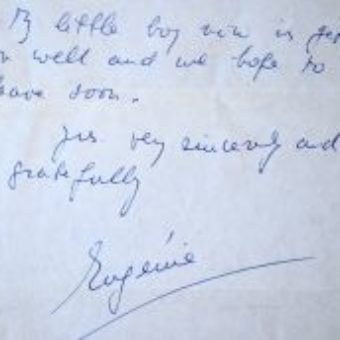 My little boy now is get
on well and we hope to
leave soon.
Yrs very sincerely and
gratefully
Eugénie